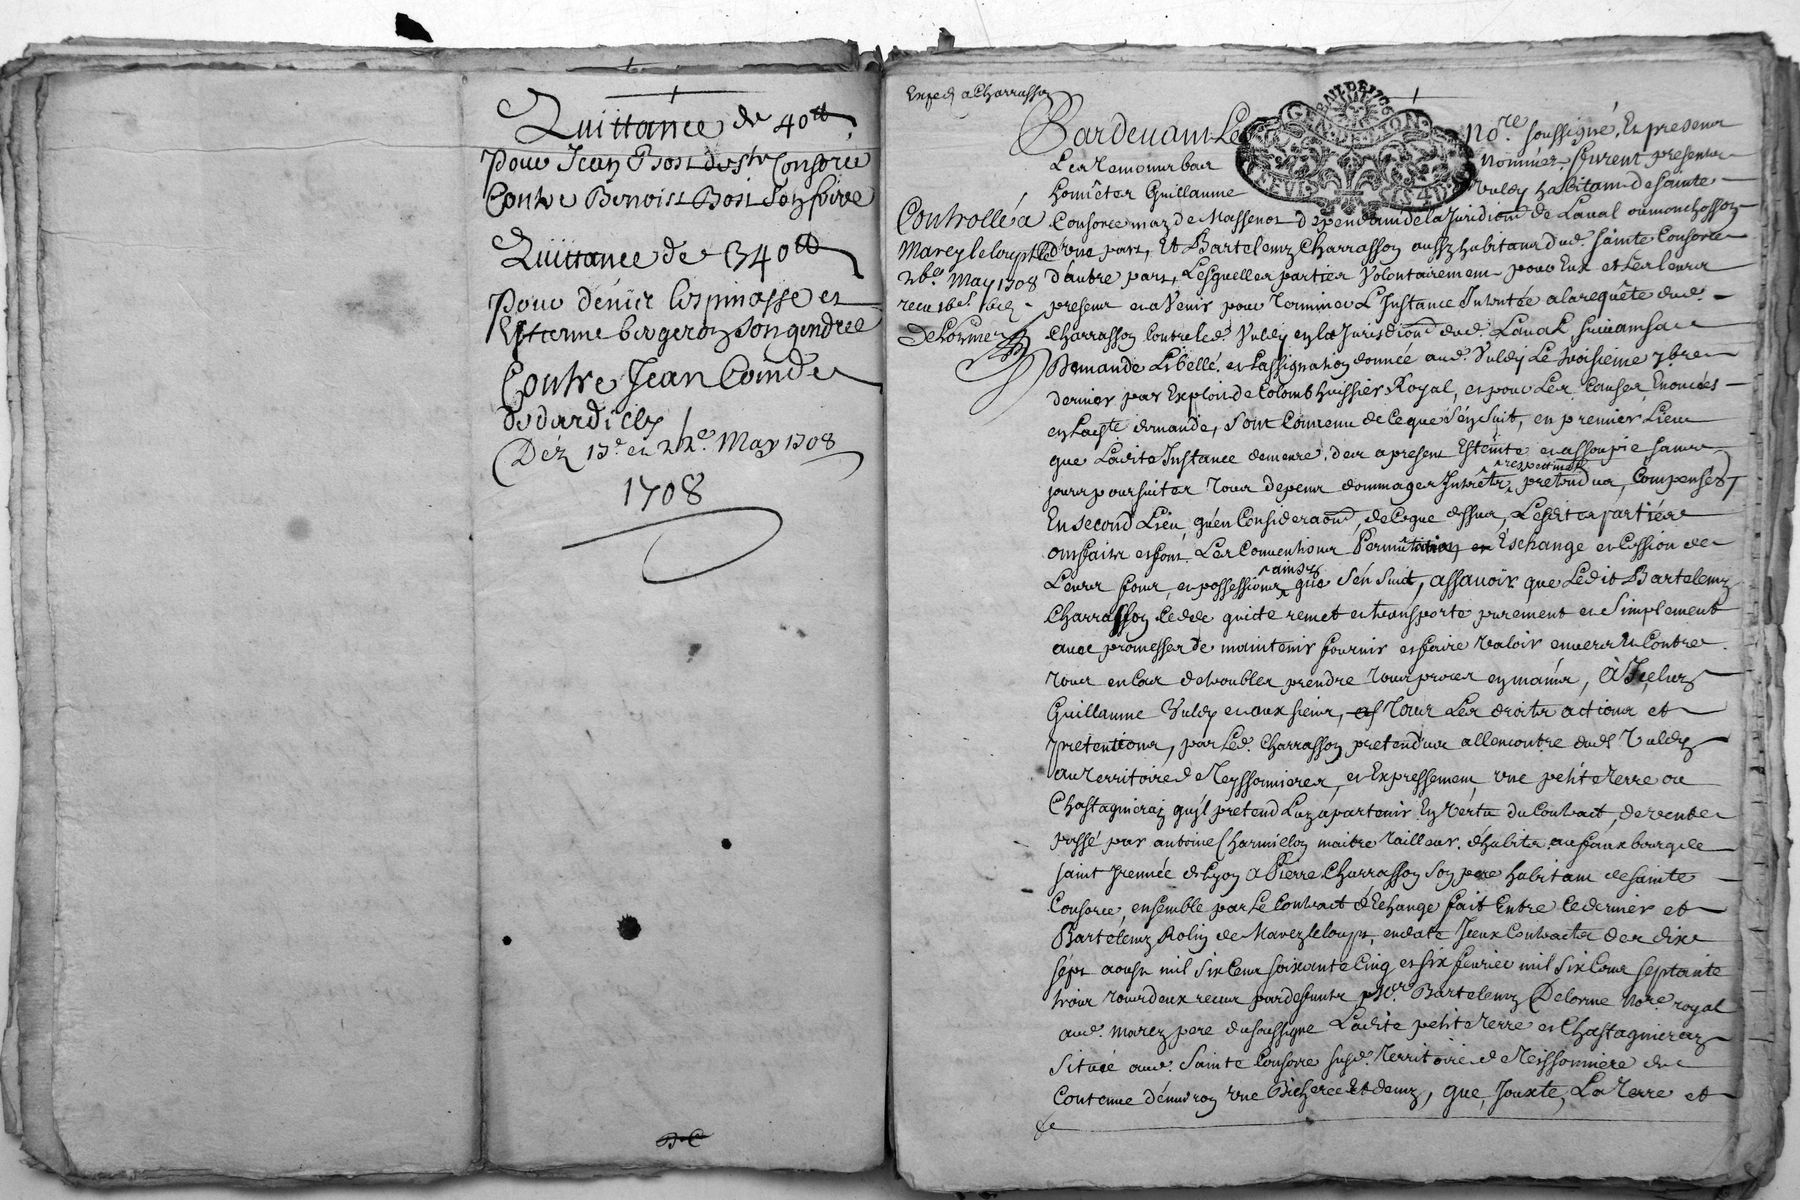 Quittance de 40tt
pour Jean Bost de Ste Consorce
Contre Benoist Bost son frère
Quittance de 340tt
pour dénüe Lespinasse et
Estienne bergeron son gendre
Contre Jean Coinde
de dardilly
Déz 13e et 22e May 1708
1708
Exped a Charrasson
Pardevant Le Nore soussigné, Et presents
Les Temoins bas nommés, furent presents
homêtes Guillaume Vuldy habitant de Sainte
Consorce maz de Massenot dependant de la Juridion de Laval ou monchosson
d'une part, Et Bartelemy Charrasson aussy habitant dud. sainte Consorce
d'autre part, Lesquelles parties Volontairement pour Eux et Les leurs
presens et a Venir pour Terminer L'Instance Intentée a la requête dud.
Charrasson Contre led. Vuldy en la Jurisdion dud. Laval suivant sa
Demande Libellé, et L'assignation donnée aud. Vuldy Le troisieme 7bre
dernier par Exploit de Colomb huissier Royal, et pour Les Causes Enoncées
en Lad'te demande, sont Convenu de Ce que s'en suit, en premier Lieu
que Ladite Instance demeure des a present Esteinte et assoupie sans
jours poursuites Tous depens dommages Interêts respectivet pretendus, Compensés
En second Lieu, qu'en Consideraon de Ce que dessus, Lesdites parties
ont fait et font Les Conventions Permutation et Eschange et Cession de
Leurs fons, et possessions ainsy que s'en suit, assavoir que Ledit Bartelemy
Charrasson Cedde quicte remet et transporte purement et simplement
avec promesses de maintenir fournir et faire Valoir envers Et Contre
Tous en Cas de troubles prendre Tous proces en mains, à Iceluy
Guillaume Vuldy et aux siens, Tous Les droits actions et
pretentions, par Led. Charrasson pretendus allencontre dud. Vuldy
au Territoire de Meyssonnieres, et Expressement une petite Terre ou
Chastagneray qu'il pretend Luy apartenir En Vertu du Contract, de vente
passé par antoine Charmillon maitre Tailleur d'habits au fauxbourg de
saint Irennée de Lyon a Pierre Charrasson son pere habitant de sainte
Consorce, ensemble par Le Contract d'Echange fait Entre Ce dernier et
Bartelemy Rolin de Marcy le loup, en date Iceux Contracts des dix
sept aoust mil six Cens soixante Cinq et six fevrier mil six Cens septante
trois Tous deux receus par defunt Me Bartelemy Delorme Nore royal
aud. marcy pere du soussigné Ladite petite Terre et Chastagneray
située aud. Sainte Consorce susd. Territoire de Meissonniere de
Contenue d'environ une Bicheree Et demy, que Jouxte, La Terre et
Controllé a
Marcy le loup Le
22e May 1708
receu
Delorme